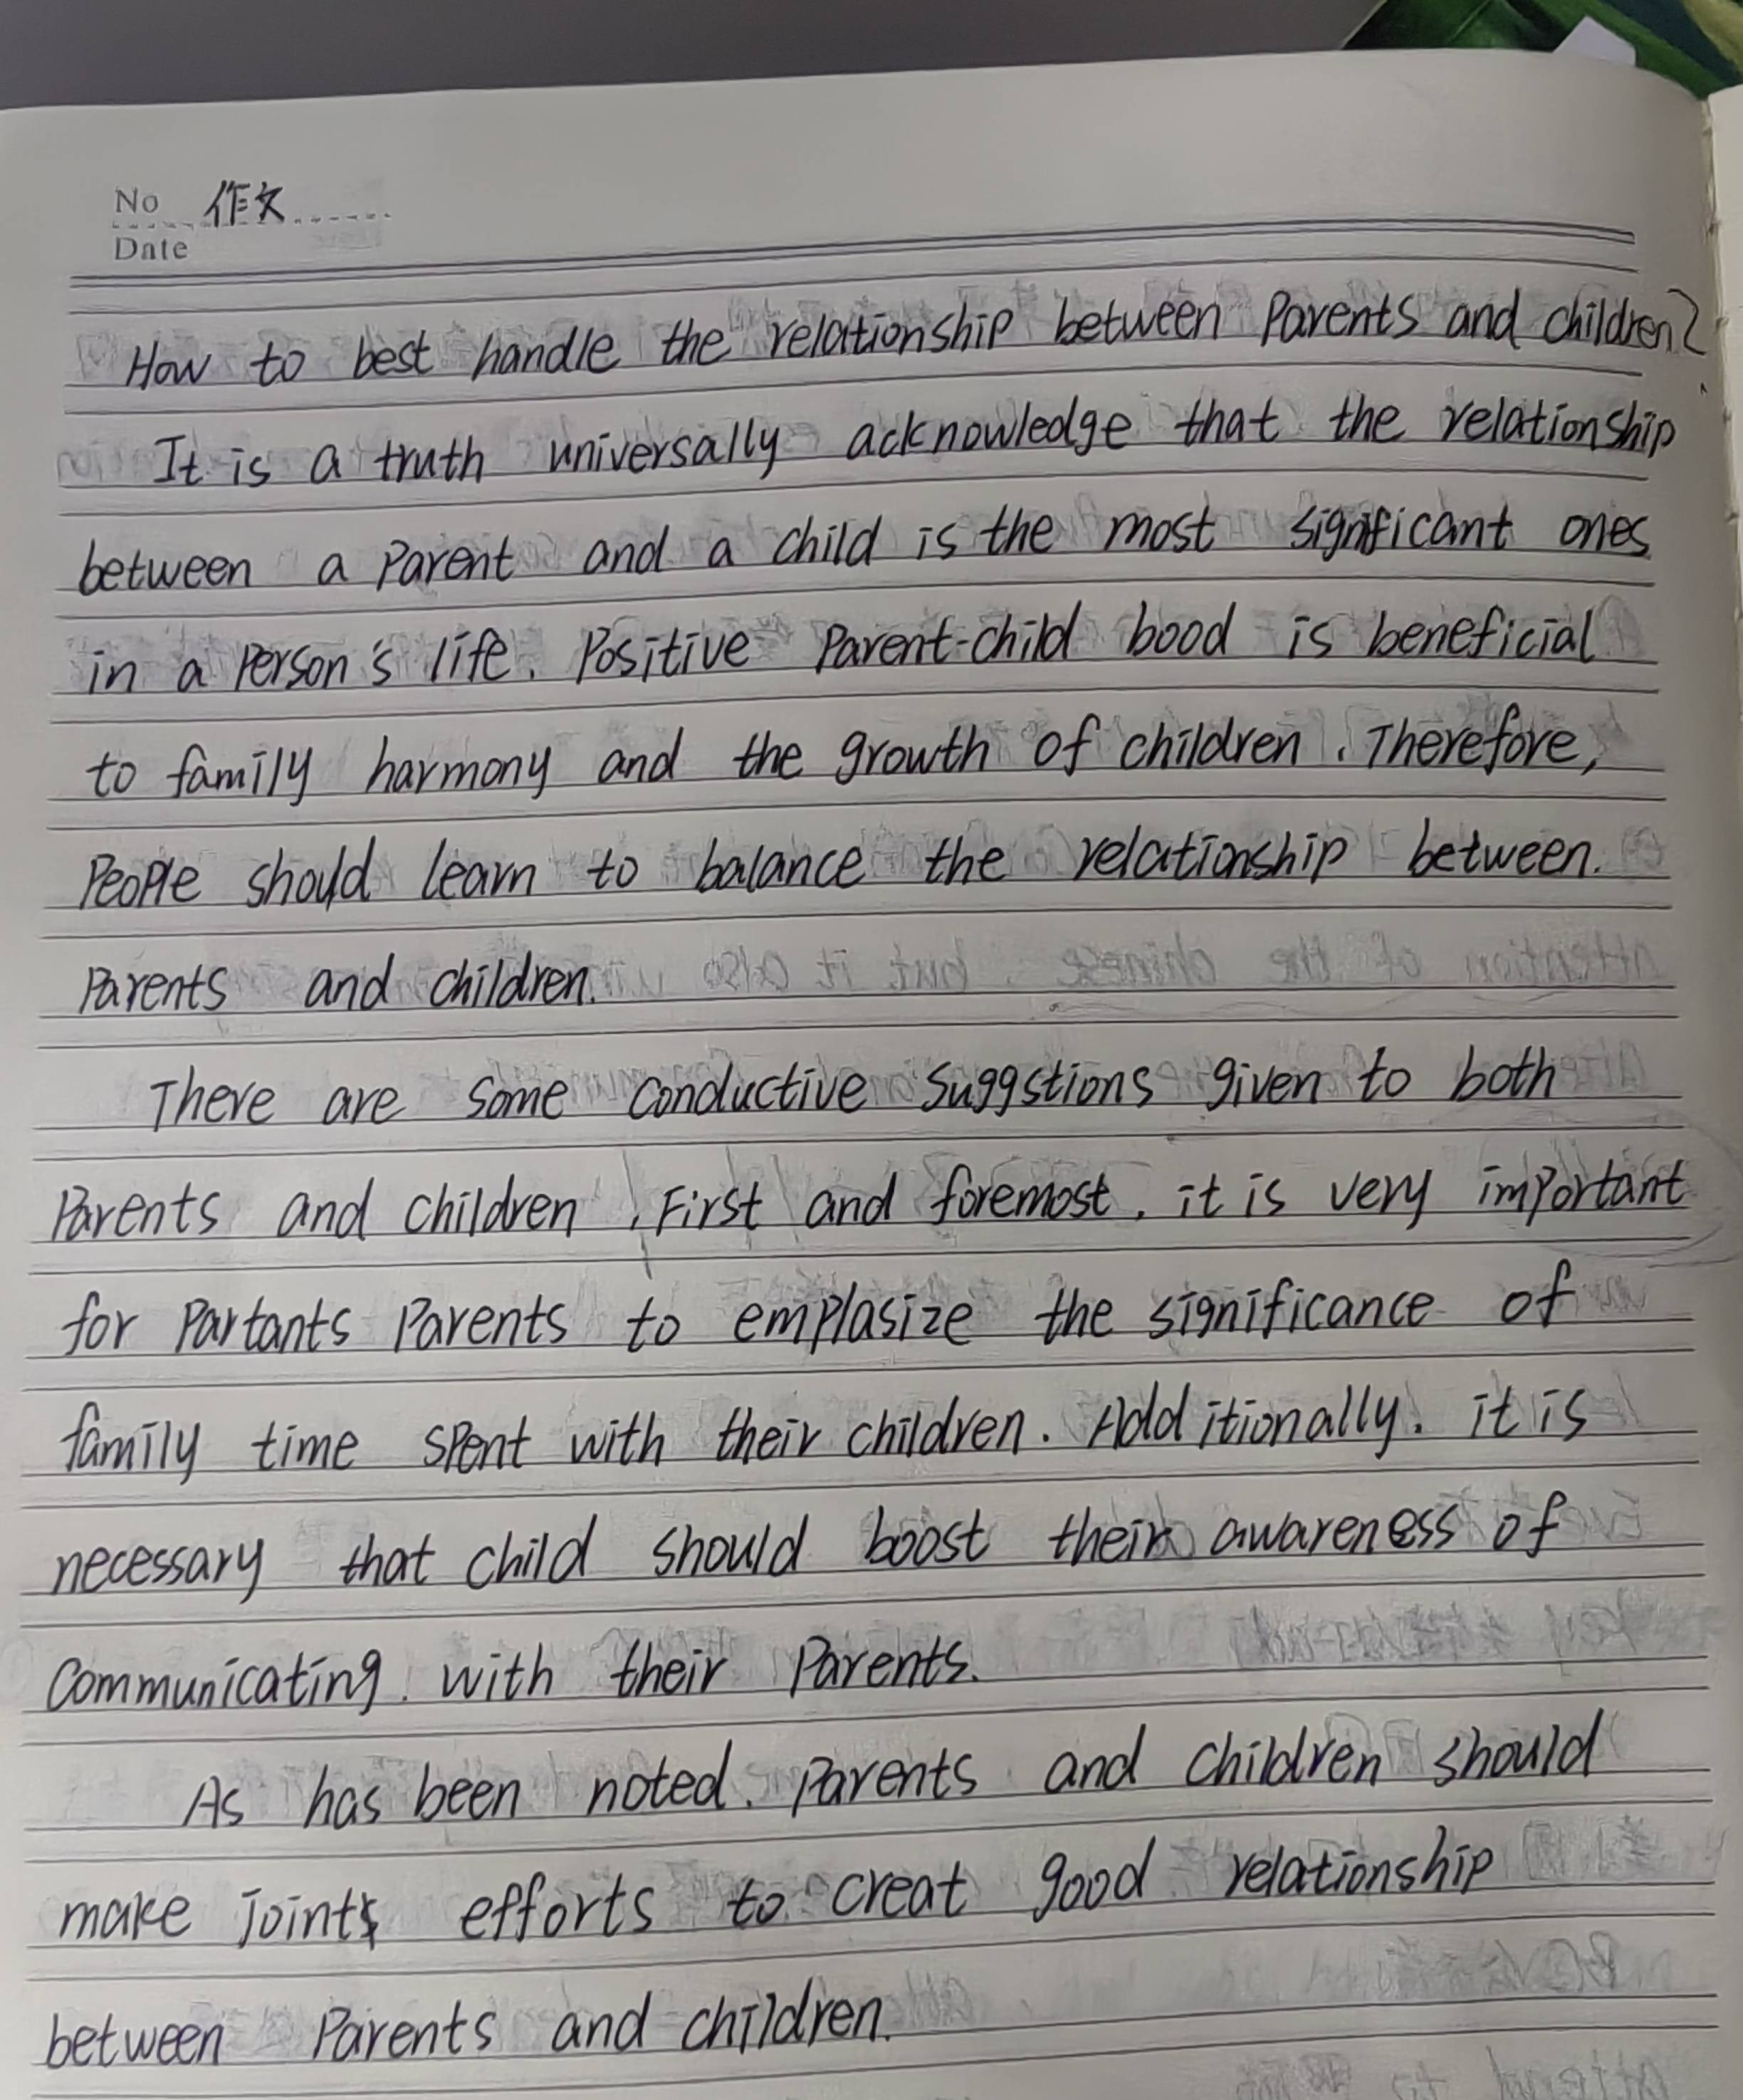 No 作文
Date
How to best handle the relationship between Parents and children?
It is a truth universally acknowledge that the relationship
between a Parent and a child is the most significant ones
in a Person's life. Positive Parent-child bood is beneficial
to family harmony and the growth of children. Therefore,
People should learn to balance the relationship between.
Parents and children.
There are some conductive suggstions given to both
Parents and children. First and foremost, it is very important
for Partants Parents to emplasize the significance of
family time spent with their children. Additionally. it is
necessary that child should boost their awareness of
communicating with their Parents.
As has been noted. Parents and children should
make joint efforts to creat good relationship
between Parents and children.